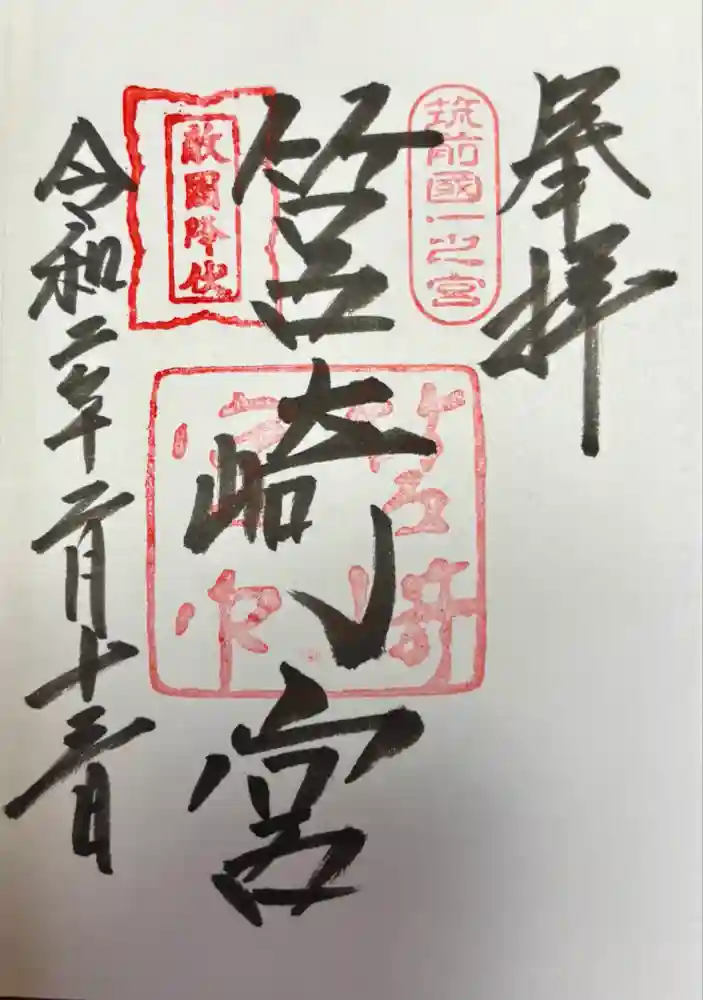 奉拝
筑前國一之宮
筥崎宮
敵國降伏
令和二年二月十三日